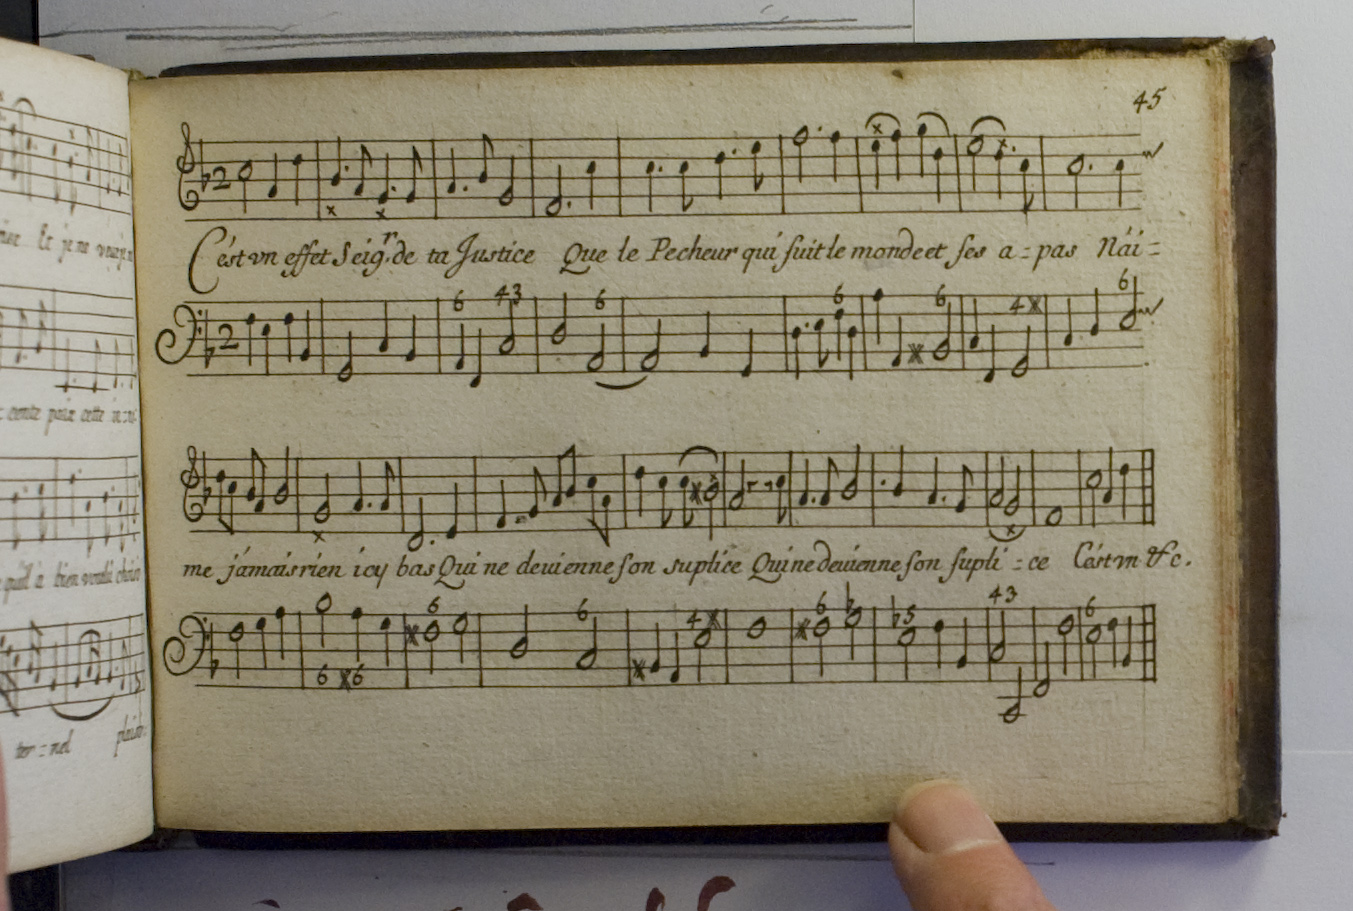 45
C'est vn effet Seig.r de ta Justice Que le Pecheur qui suit le monde et ses a=pas N'ai=
6 43 6 6 6 4 6
me jamais rien icy bas Qui ne deuienne son suplice Qui ne deuienne son supli=ce C'est vn &c.
6 6 4 6 5 43 6
6 6
Et je ne veux
cette
qu'il a bien voulu choisir
ter=nel